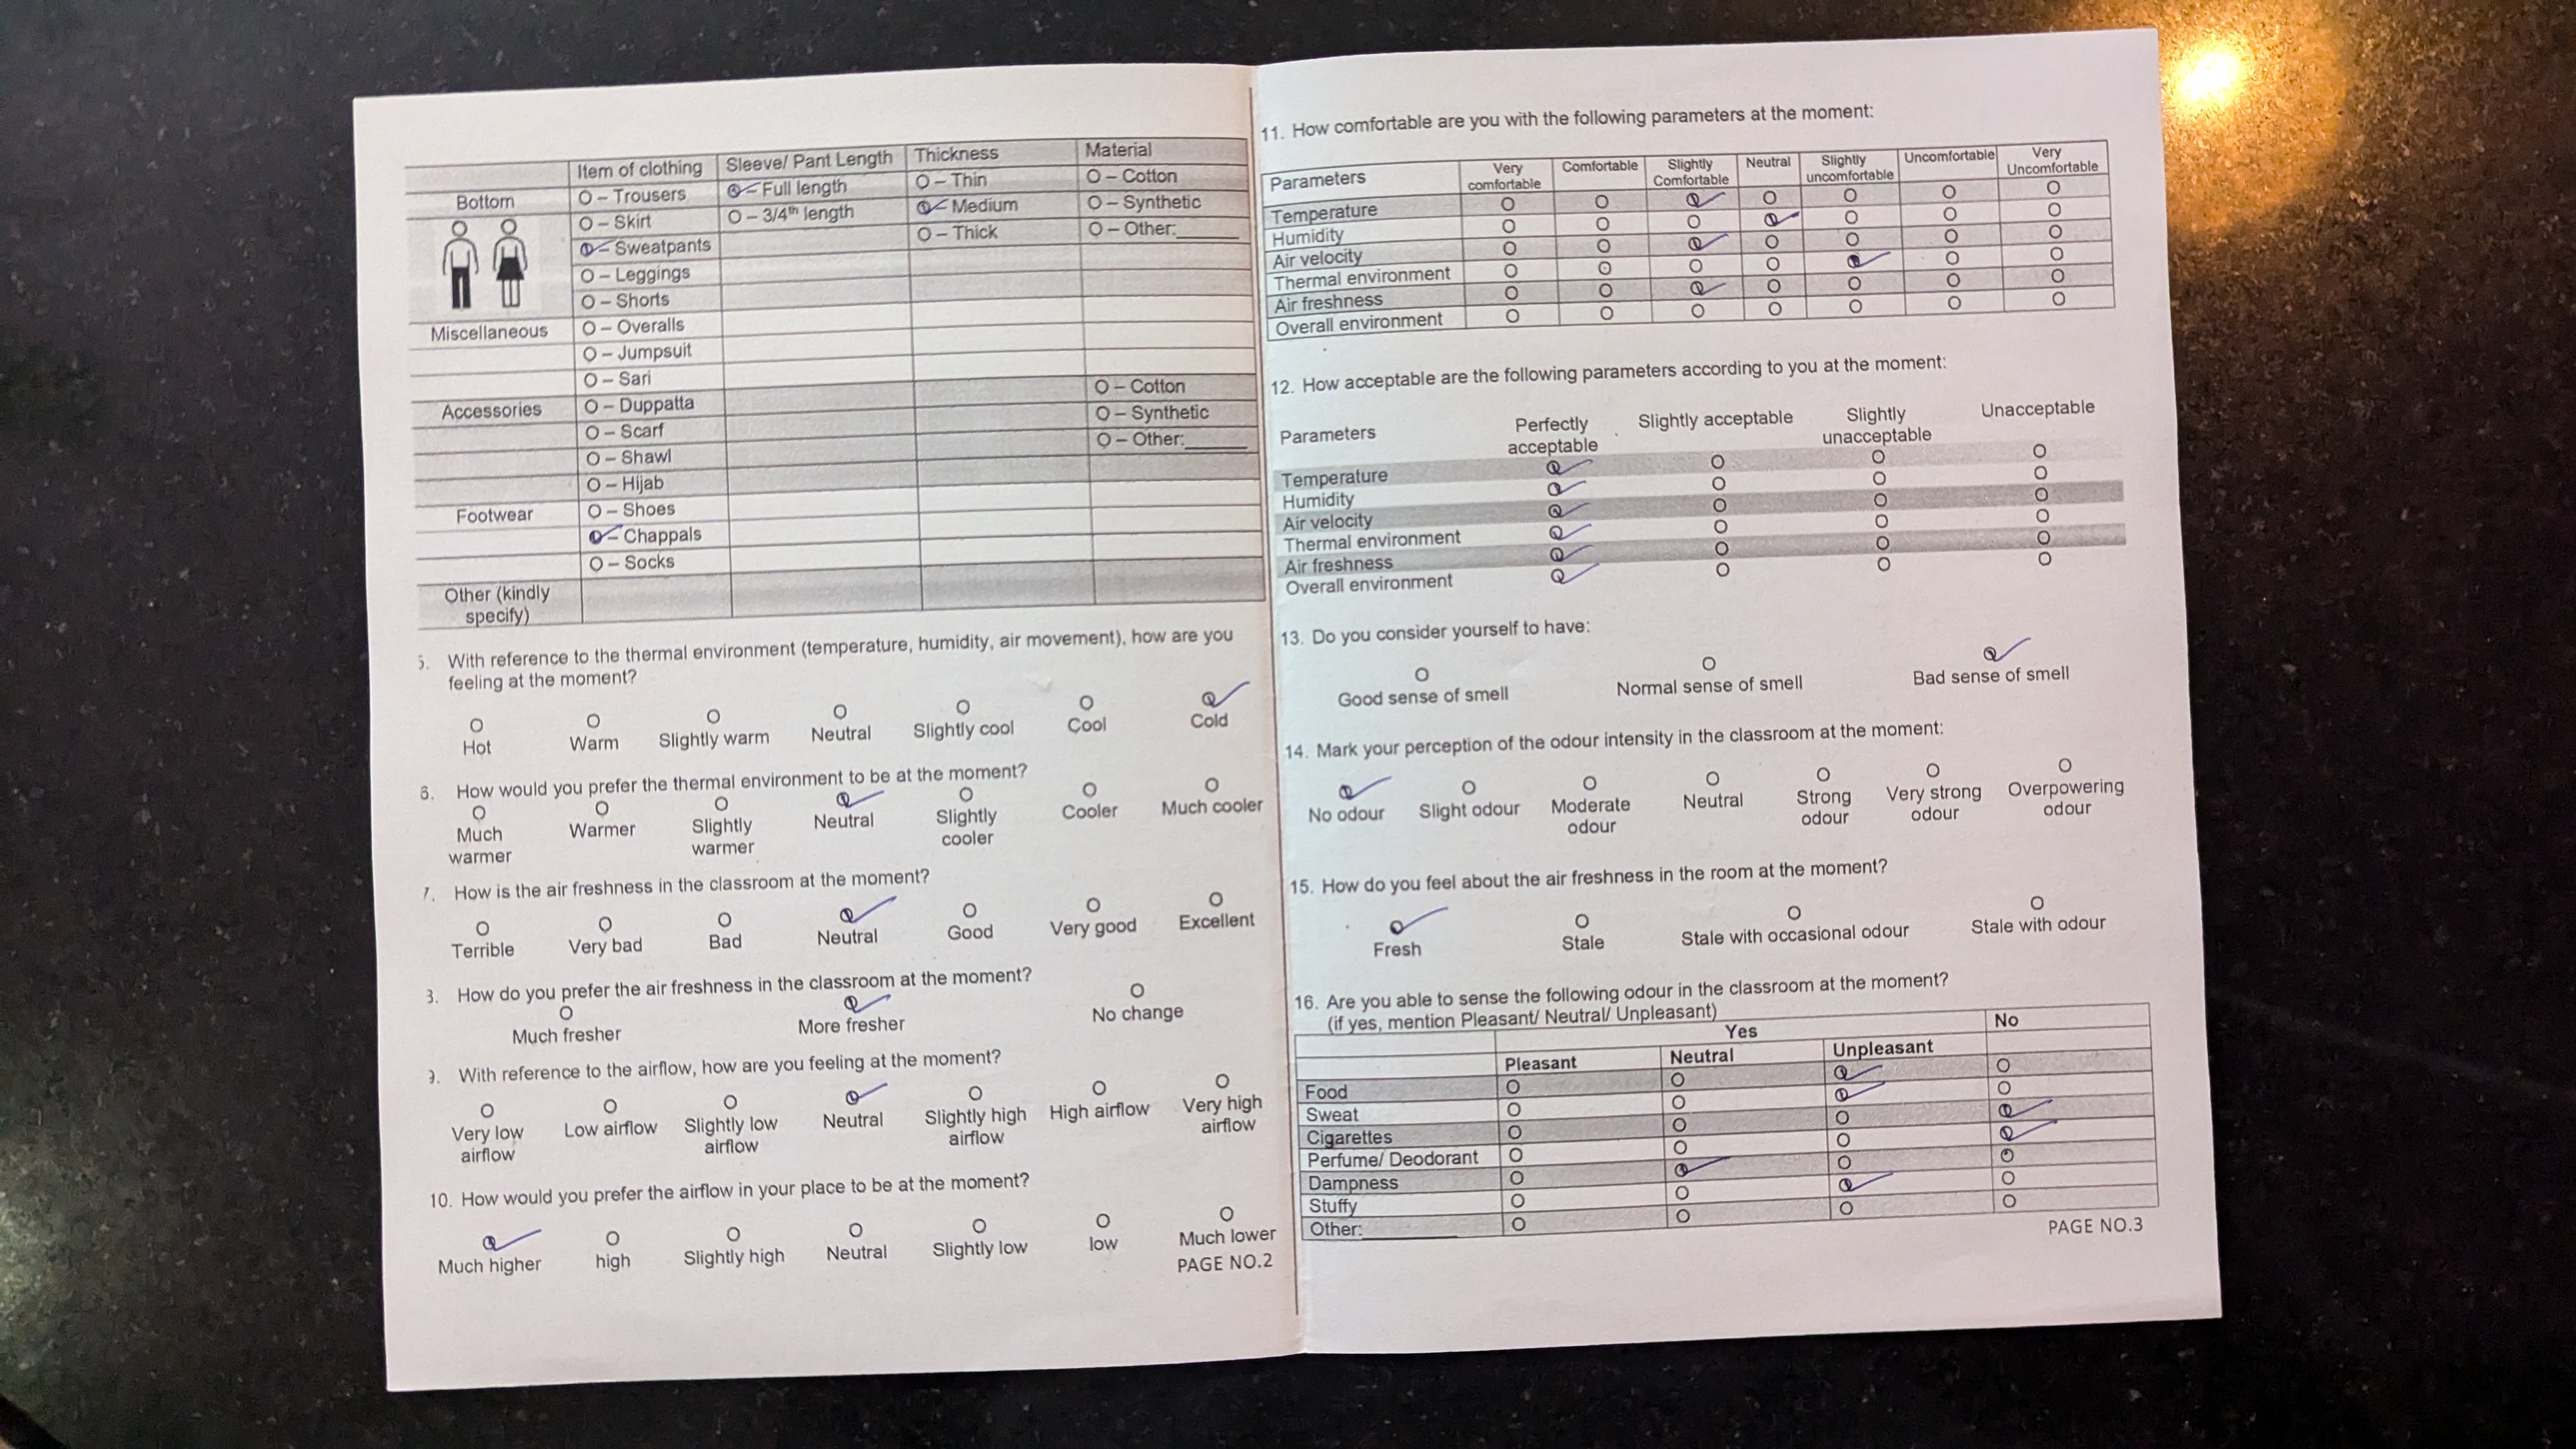 Item of clothing Sleeve/ Pant Length Thickness Material
Bottom O – Trousers O – Full length O – Thin O – Cotton
O – Skirt O – 3/4th length O – Medium O – Synthetic
O – Sweatpants O – Thick O – Other:______
O – Leggings
O – Shorts
Miscellaneous O – Overalls
O – Jumpsuit
O – Sari
Accessories O – Duppatta O – Cotton
O – Scarf O – Synthetic
O – Shawl O – Other:______
O – Hijab
Footwear O – Shoes
O – Chappals
O – Socks
Other (kindly
specify)
5. With reference to the thermal environment (temperature, humidity, air movement), how are you
feeling at the moment?
Hot Warm Slightly warm Neutral Slightly cool Cool Cold
6. How would you prefer the thermal environment to be at the moment?
Much
warmer Warmer Slightly
warmer Neutral Slightly
cooler Cooler Much cooler
7. How is the air freshness in the classroom at the moment?
Terrible Very bad Bad Neutral Good Very good Excellent
8. How do you prefer the air freshness in the classroom at the moment?
Much fresher More fresher No change
9. With reference to the airflow, how are you feeling at the moment?
Very low
airflow Low airflow Slightly low
airflow Neutral Slightly high
airflow High airflow Very high
airflow
10. How would you prefer the airflow in your place to be at the moment?
Much higher high Slightly high Neutral Slightly low low Much lower
PAGE NO.2
11. How comfortable are you with the following parameters at the moment:
Parameters Very
comfortable Comfortable Slightly
Comfortable Neutral Slightly
uncomfortable Uncomfortable Very
Uncomfortable
Temperature
Humidity
Air velocity
Thermal environment
Air freshness
Overall environment
12. How acceptable are the following parameters according to you at the moment:
Parameters Perfectly
acceptable Slightly acceptable Slightly
unacceptable Unacceptable
Temperature
Humidity
Air velocity
Thermal environment
Air freshness
Overall environment
13. Do you consider yourself to have:
Good sense of smell Normal sense of smell Bad sense of smell
14. Mark your perception of the odour intensity in the classroom at the moment:
No odour Slight odour Moderate
odour Neutral Strong
odour Very strong
odour Overpowering
odour
15. How do you feel about the air freshness in the room at the moment?
Fresh Stale Stale with occasional odour Stale with odour
16. Are you able to sense the following odour in the classroom at the moment?
(if yes, mention Pleasant/ Neutral/ Unpleasant)
Yes No
Pleasant Neutral Unpleasant
Food
Sweat
Cigarettes
Perfume/ Deodorant
Dampness
Stuffy
Other:__________
PAGE NO.3